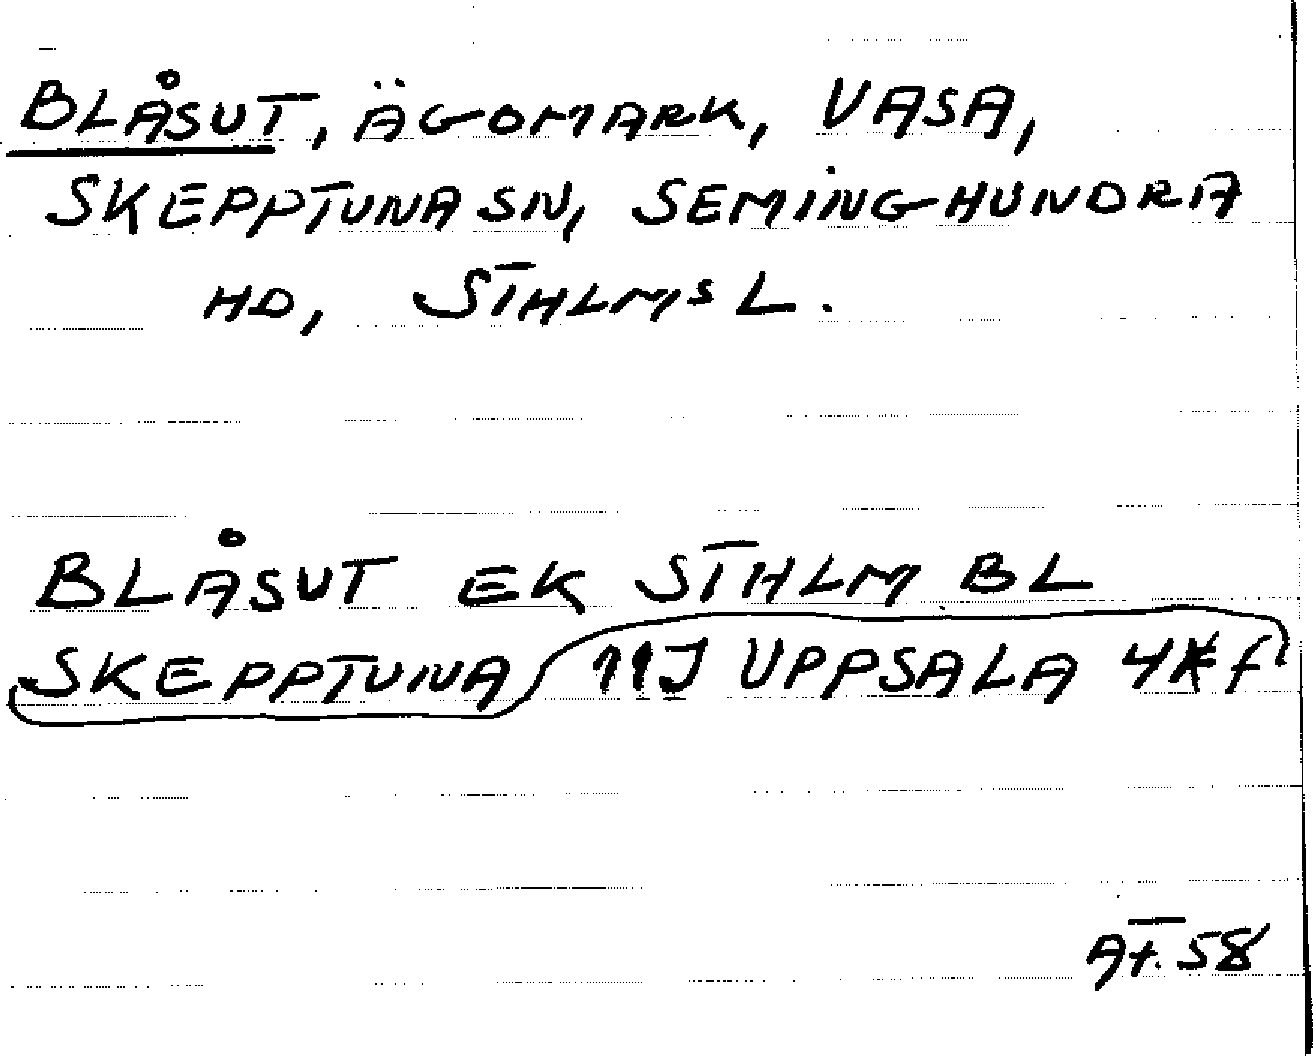 BLÅSUT, ÄGOMARK, VASA,
SKEPPTUNA SN, SEMINGHUNDRA
HD, STHLMS L.
BLÅSUT EK STHLM BL
SKEPPTUNA 11J UPPSALA 4 f
AT. 58